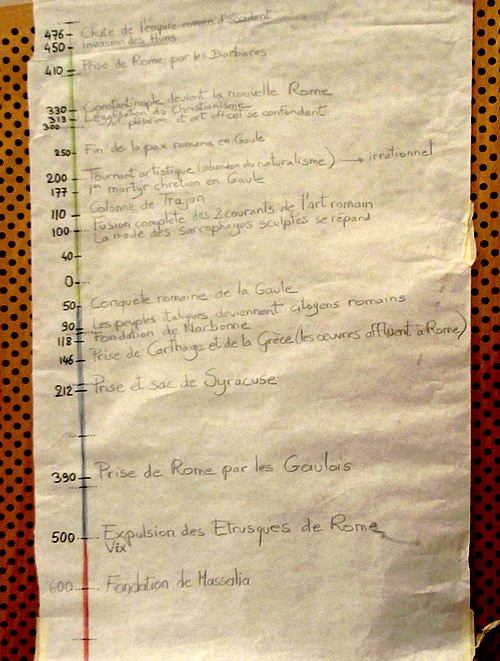 476 Chute de l'empire romain d'occident
450 invasion des Huns
410 Prise de Rome par les Barbares
330 Constantinople devient la nouvelle Rome
313 Légalisation du Christianisme
300 plébéien et art officiel se confondent
250 Fin de la pax romana en Gaule
200 Tournant artistique (abandon du naturalisme) → irrationnel
177 1er martyr chrétien en Gaule
110 Colonne de Trajan
Fusion complète des 2 courants de l'art romain
100 La mode des sarcophages sculptés se répand
40
0
50 Conquête romaine de la Gaule
90 Les peuples italiques deviennent citoyens romains
118 Fondation de Narbonne
146 Prise de Carthage et de la Grèce (les œuvres affluent à Rome)
212 Prise et sac de Syracuse
390 Prise de Rome par les Gaulois
500 Expulsion des Etrusques de Rome
Vix
600 Fondation de Massalia